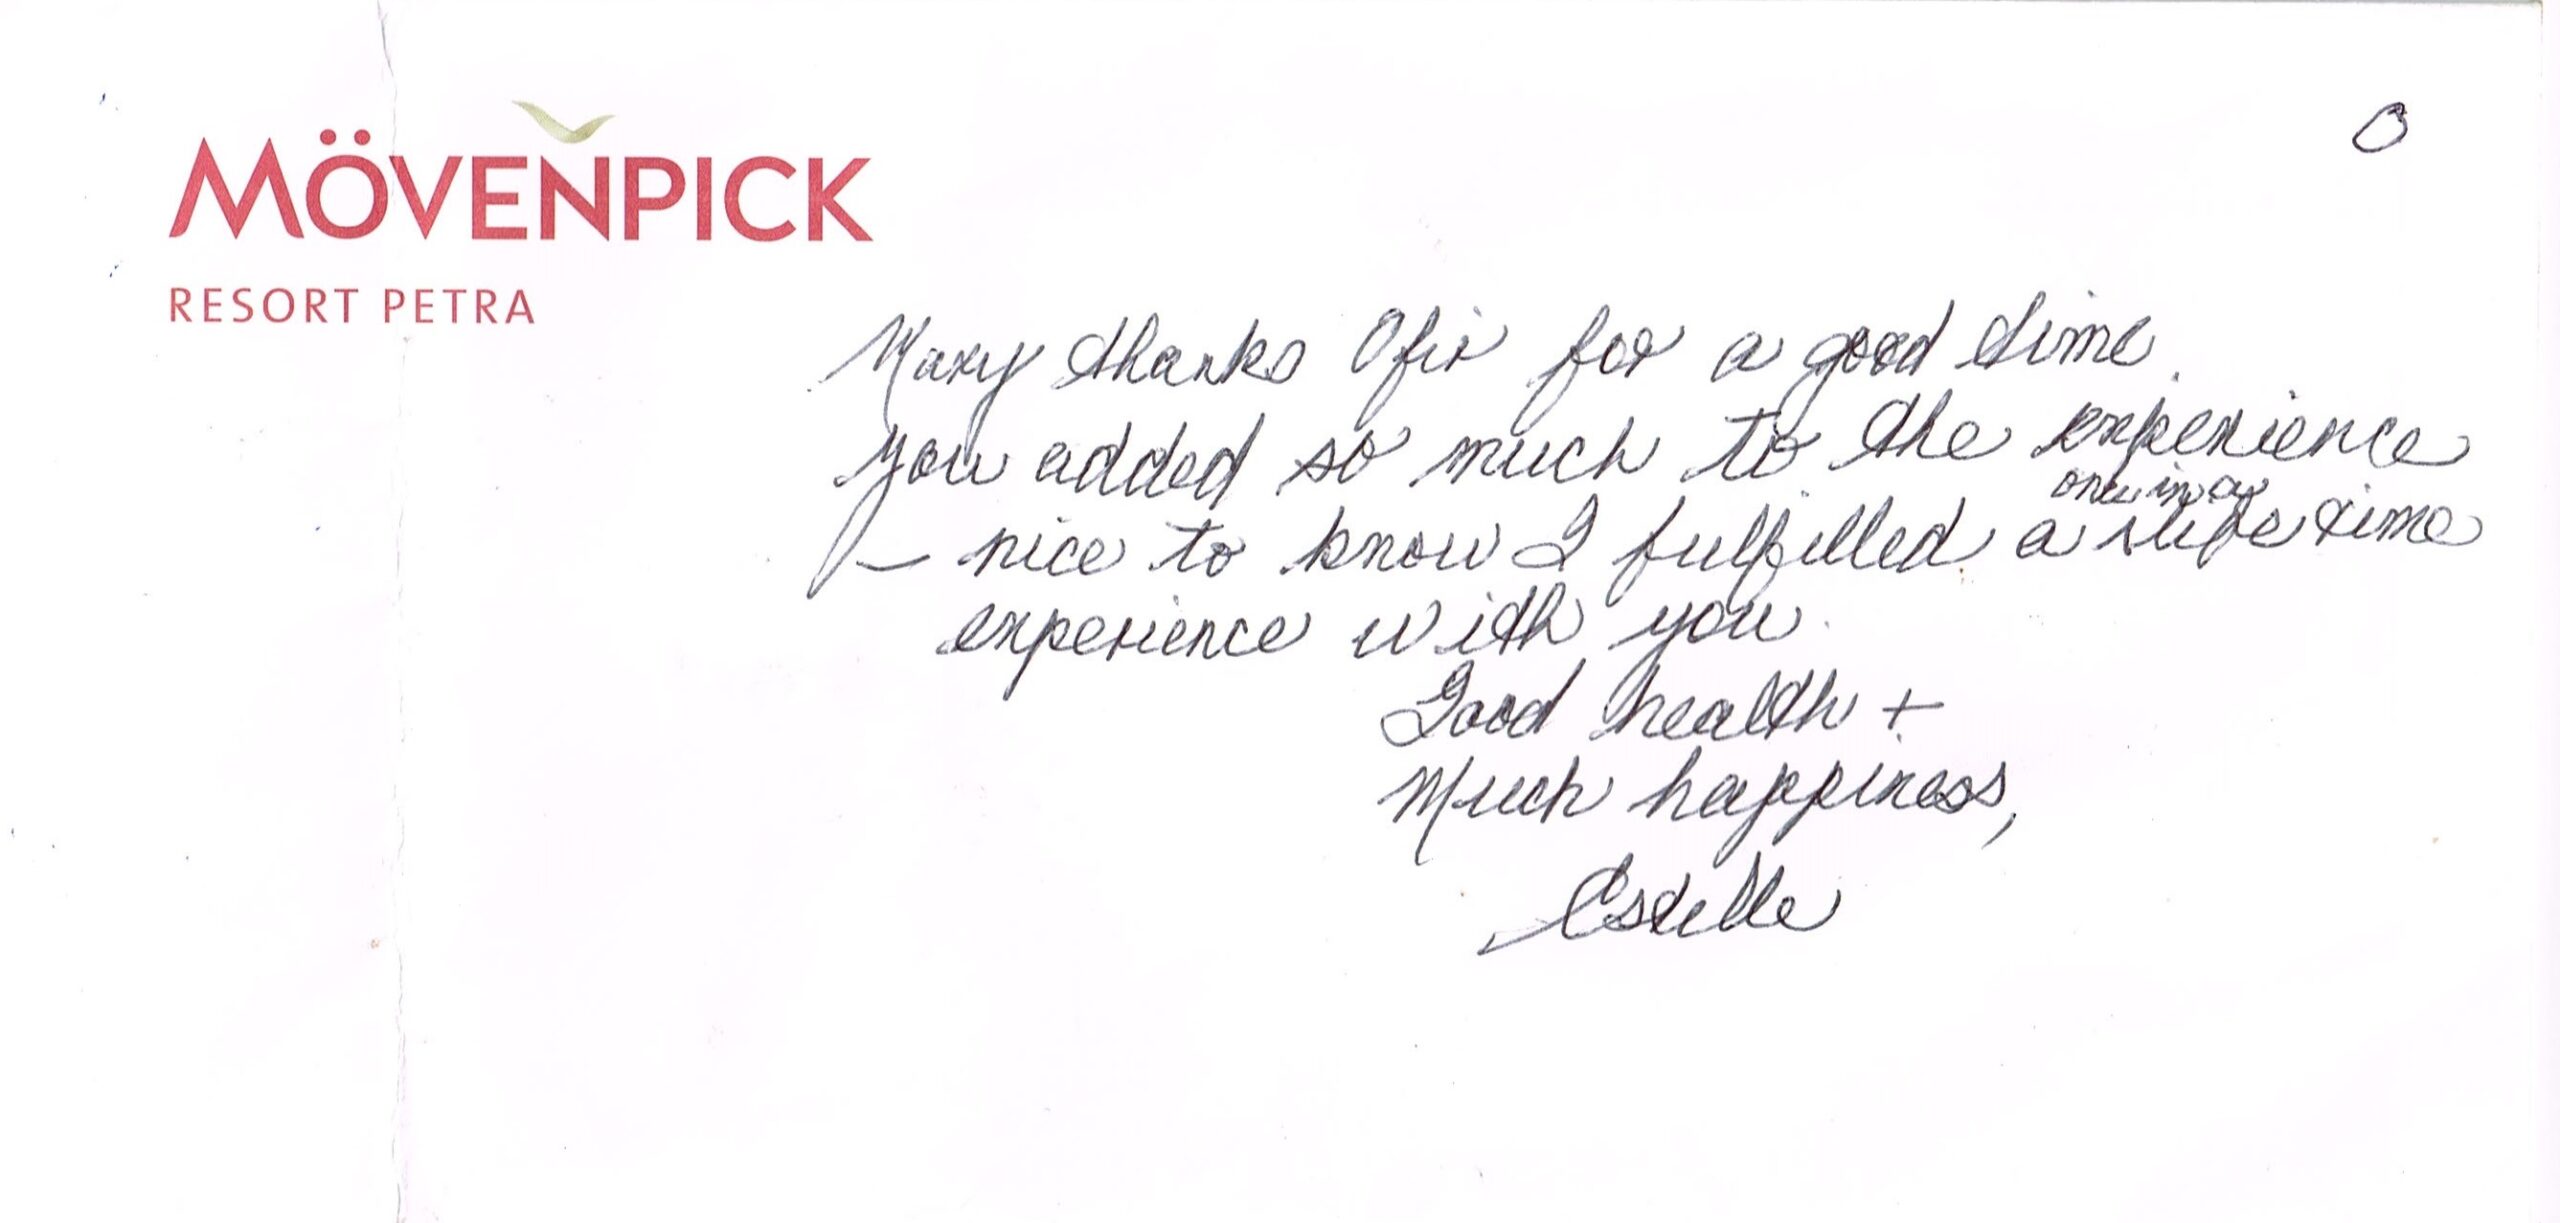 MÖVENPICK
RESORT PETRA
Many thanks Ofir for a good time.
You added so much to the experience
– nice to know I fulfilled a once in a life time
experience with you.
Good health +
Much happiness,
Estelle